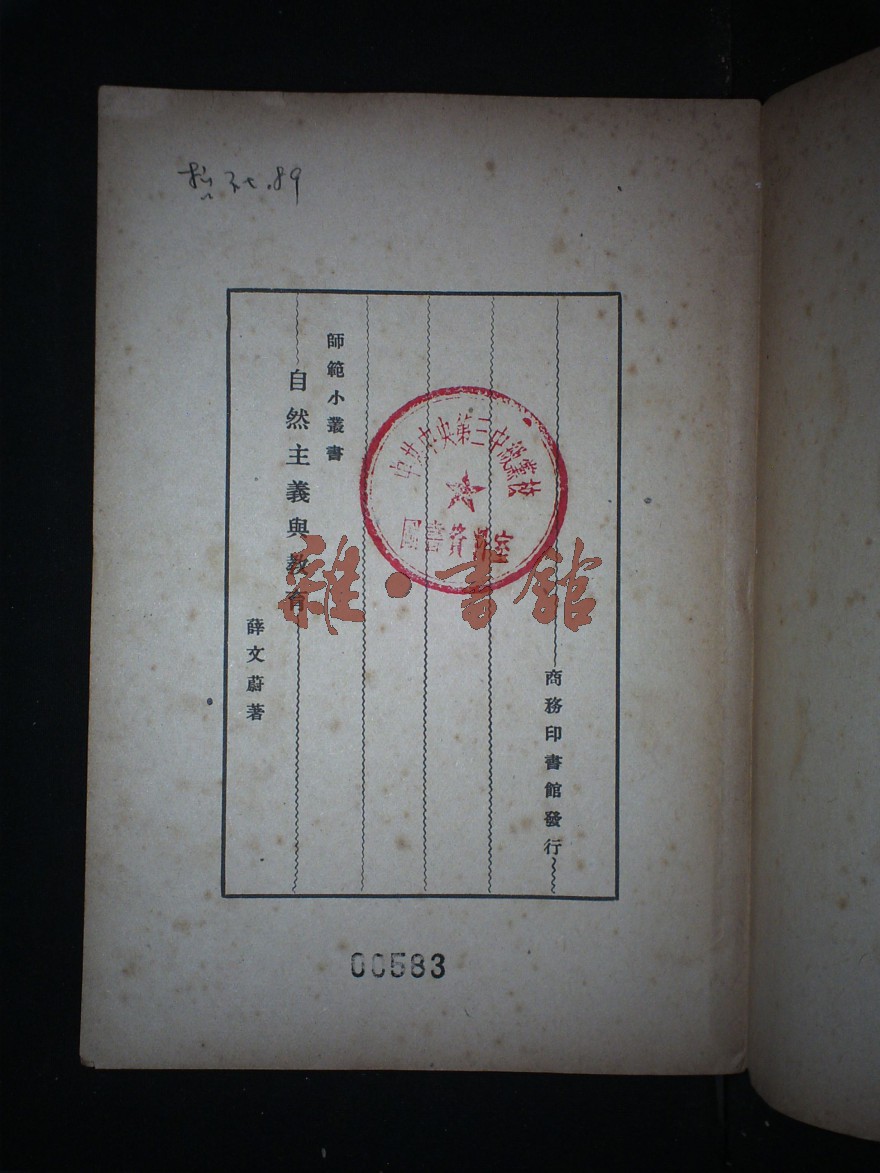 .89
師範小叢書
自然主義與教育
薛文蔚著
商務印書館發行
中共中央第三中級黨校
圖書資料室
雜·書館
00583